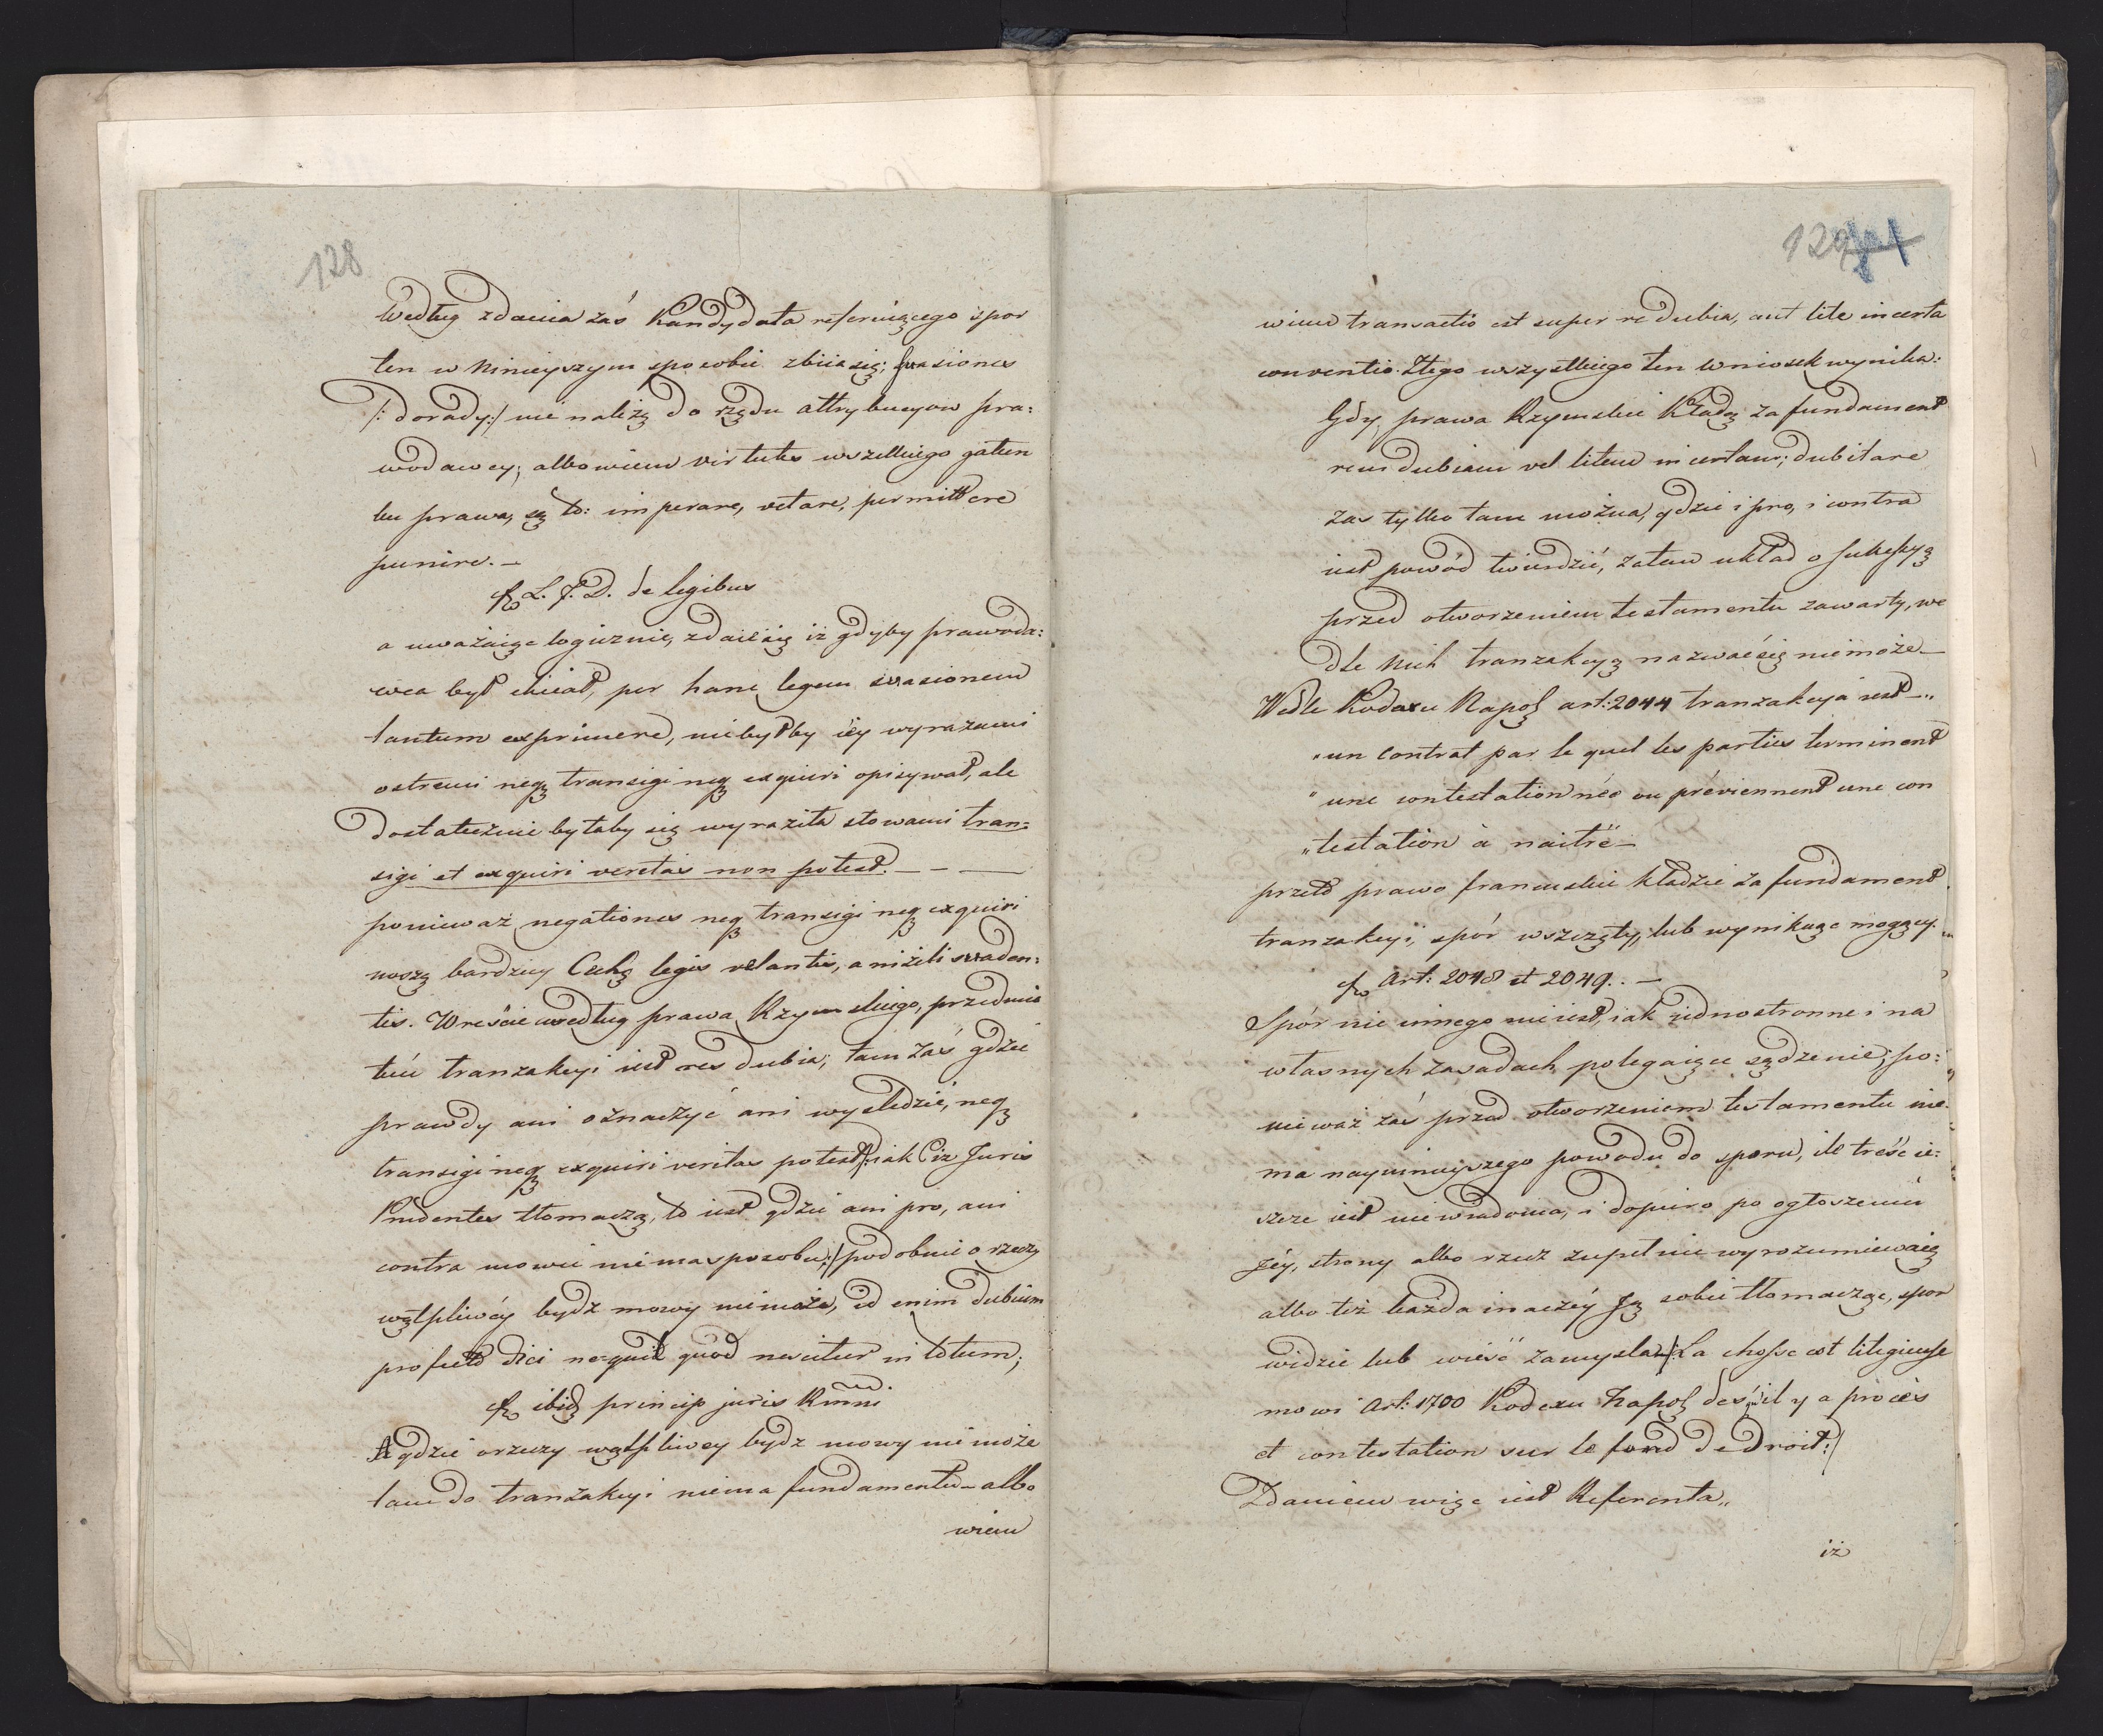 128
Według zdania zaś Kandydata referuiącego spor
ten w Ninieyszym sposobie zbiia się; Svasiones
/: dorady:/ nie należą do rzędu attrybucyow pra:
wodawcy; albowiem virtutes wszelkiego gatun
ku prawa, są to: imperare, vetare, permittere
punire. —
L. 7. D. de legibus
a uważaiąc logicznie, zdaie się iż gdyby prawoda:
wca był chciał, per hanc legem svasionem
tantum exprimere, niebyłby iéy wyrazami
ostremi neqz transigi neqz exquiri opisywał, ale
dostatecznie byłaby się wyraziła słowami tran=
sigi et exquiri veritas non potest. — — —
ponieważ negationes neqz transigi neqz exquiri
noszą bardziey Cechę legis vetantis, aniżeli svaden:
tis. Wreście według prawa Rzymskiego, przedmio
tem tranzakcyi iest res dubia; tam zaś gdzie
prawdy ani oznaczyć ani wysledzić, neqz
transigi neqz exquiri veritas potest /: iak Ciż Juris
Prudentes tłomaczą, to iest gdzie ani pro, ani
contra mowić niema sposobu :/ podobnie o rzeczy
wątpliwéy bydź mowy niemoże, id enim dubium
profecto dici nequit quod nescitur in totum;
ibidz princip juris Rmni.
A gdzie orzeczy wątpliwey bydz mowy nie może
tam do tranzakcyi niema fundamentu — albo
wiem
129
wiem transactio est super re dubia, aut lite incerta
conventio. Ztego wszystkiego ten wniosek wynika:
Gdy prawa Rzymskie Kładą za fundament
rem dubiam vel litem incertam; dubitare
zas tylko tam można, gdzie i pro, i contra
iest powód twierdzić, zatem układ o sukcessyą
przed otworzeniem testamentu zawarty, we
dle Nich tranzakcyą nazwać się niemoże —
Wedle Kodexu Napol art: 2044 tranzakcyia iest —„
„un Contrat par le quel les parties terminent
„une contestation née ou préviennent une con
„testation à naitre —
przeto prawo francuskie kładzie za fundament
tranzakcyi, spór wszczęty, lub wyniknąc mogący.
Art: 2048 et 2049. . —
Spór nic innego nie iest, iak iednostronne i na
własnych zasadach polegaiące sądzenie; po:
nieważ zaś przed otworzeniem testamentu nie
ma naymnieyszego powodu do sporu, ile treśc ie:
szcze iest niewiadoma, i dopiero po ogłoszeniu
jéy, strony albo rzecz zupełnie wyrozumiewaią
albo też każda inaczéy Ją sobie tłomacząc, spor
widzie lub wieść zamysla /: La chosse est litigieuse
mowi Art: 1700 Kodexu Napol des qu'il y a procès
et contestation sur le fond de Droit :/
Zdaniem więc iest Referenta„
iż